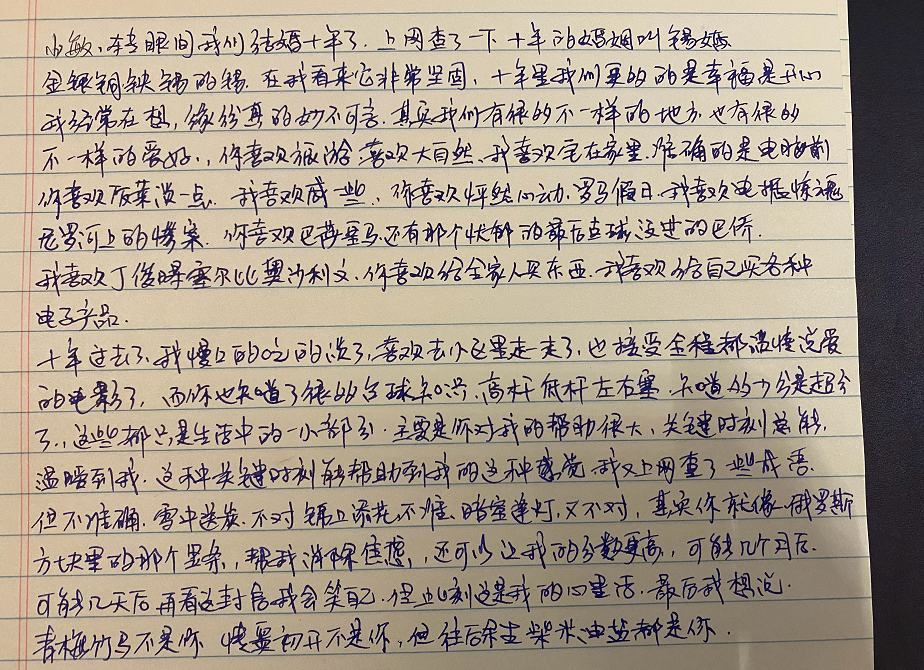 小敏、转眼间我们结婚十年了. 上网查了一下 十年的婚姻叫锡婚
金银铜铁锡的锡. 在我看来它非常坚固, 十年里我们更多的是幸福是开心
我经常在想, 缘份真的妙不可言. 其实我们有很多不一样的地方 也有很多
不一样的爱好., 你喜欢旅游 喜欢大自然. 我喜欢宅在家里. 准确的是电脑前
你喜欢饭菜淡一点. 我喜欢咸一些, 你喜欢怦然心动. 罗马假日. 我喜欢电锯惊魂
尼罗河上的惨案. 你喜欢巴蒂罗马. 还有那个忧郁的最后点球没进的巴乔.
我喜欢丁俊晖塞尔比奥沙利文. 你喜欢给全家人买东西. 我喜欢给自己买各种
电子产品.
十年过去了. 我慢慢的吃的淡了, 喜欢去小区里走一走了, 也接受全程都温情没爱
的电影了, 而你也知道了很多台球知识. 高杆低杆左右塞. 知道147分是超分
了., 这些都只是生活中的一小部分. 主要是你对我的帮助很大、关键时刻总能,
温暖到我. 这种关键时刻能帮助到我的这种感觉 我又上网查了一些成语.
但不准确. 雪中送炭. 不对 锦上添花, 不准、暗室逢灯, 又不对, 其实你就像俄罗斯
方块里的那个竖条, 帮我消除焦虑,, 还可以让我的分数更高, 可能几个月后.
可能几天后 再看这封信我会笑自己. 但此刻这是我的心里话. 最后我想说.
青梅竹马不是你 情窦初开不是你, 但往后余生 柴米油盐都是你.